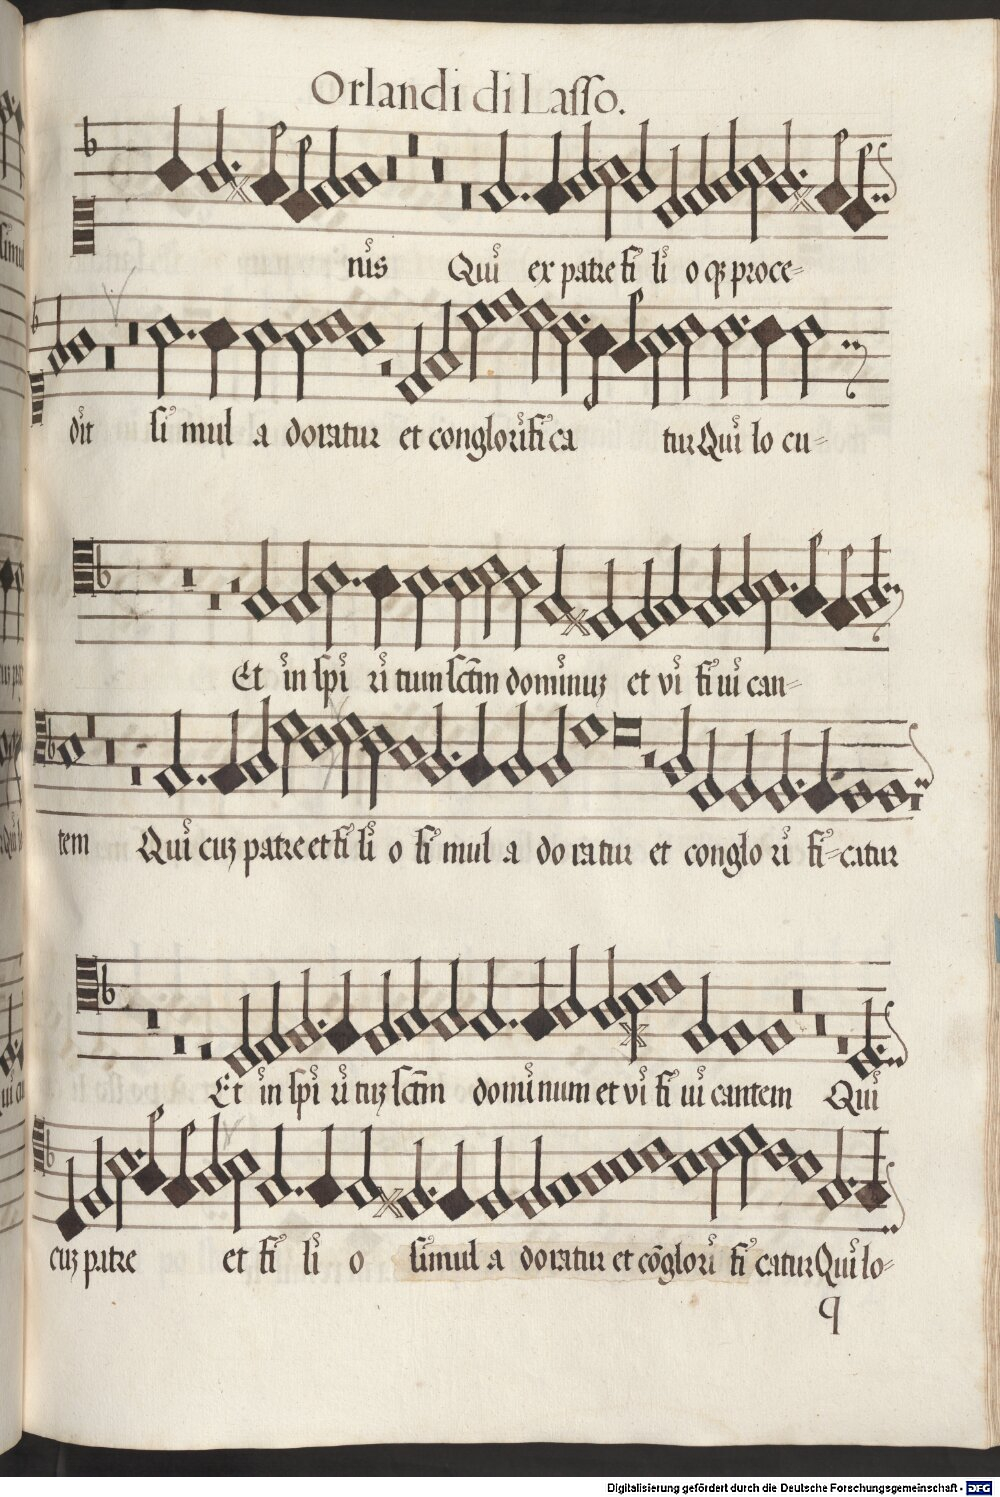 Orlandi di Lasso.
nis Qui ex patre fi li o qz proce-
dit si mul a doratur et conglorifi ca tur Qui lo cu-
Et in spi ri tum sctm dominuz et vi fi vi can-
tem Qui cuz patre et fi li o si mul a do ra tur et conglo ri fi-catur
Et in spi ri tuz sctm dominum et vi fi vi cantem Qui
cuz patre et fi li o simul a doratur et cōglori fi catur Qui lo-
q
Digitalisierung gefördert durch die Deutsche Forschungsgemeinschaft - DFG